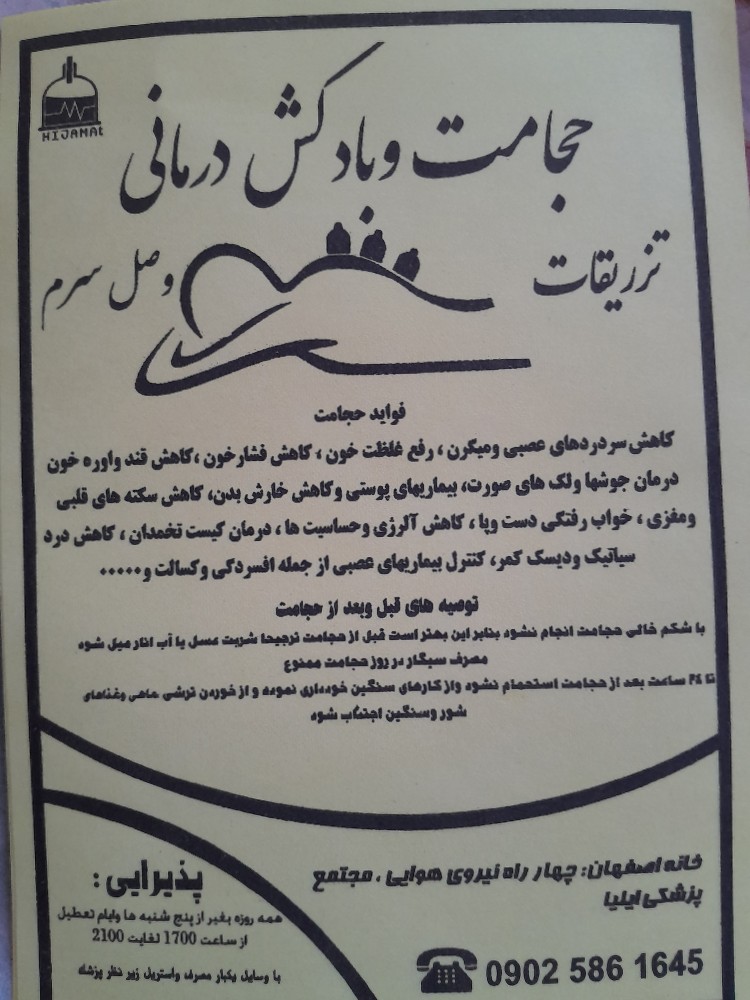 HIJAMAt
حجامت وبادکش درمانی
تزریقات وصل سرم
فواید حجامت
کاهش سردردهای عصبی ومیگرن ، رفع غلظت خون ، کاهش فشارخون ،کاهش قند واوره خون
درمان جوشها ولک های صورت، بیماریهای پوستی وکاهش خارش بدن، کاهش سکته های قلبی
ومغزی ، خواب رفتگی دست وپا ، کاهش آلرژی وحساسیت ها ، درمان کیست تخمدان ، کاهش درد
سیاتیک ودیسک کمر، کنترل بیماریهای عصبی از جمله افسردگی وکسالت و۰۰۰۰۰
توصیه های قبل وبعد از حجامت
با شکم خالی حجامت انجام نشود بنابر این بهتر است قبل از حجامت ترجیحا شربت عسل یا آب انار میل شود
مصرف سیگار در روز حجامت ممنوع
تا ۲۴ ساعت بعد از حجامت استحمام نشود واز کارهای سنگین خودداری نموده و از خوردن ترشی ماهی وغذاهای
شور وسنگین اجتناب شود
خانه اصفهان: چهار راه نیروی هوایی ، مجتمع
پزشکی ایلیا
0902 586 1645
پذیرایی :
همه روزه بغیر از پنج شنبه ها وایام تعطیل
از ساعت 1700 لغایت 2100
با وسایل یکبار مصرف واستریل زیر نظر پزشک